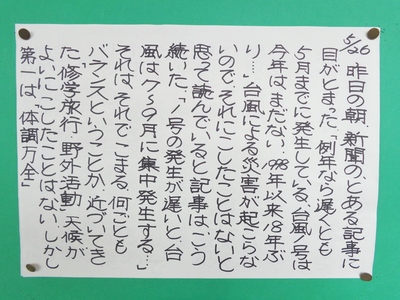 5/26 昨日の朝、新聞の、とある記事に
目がとまった。例年なら遅くとも
5月までに発生している、台風1号は
今年は、まだない。1998年以来18年ぶ
り…」台風による災害が起こらな
いので、それにこしたことはないと
思って読んでいると記事は、こう
続いた。「1号の発生が遅いと、台
風は7〜9月に集中発生する…」
それは、それでこまる。何ごとも
バランスということか。近づいてき
た、「修学旅行、野外活動」天候が
よいにこしたことはない。しかし
第一は、「体調万全」